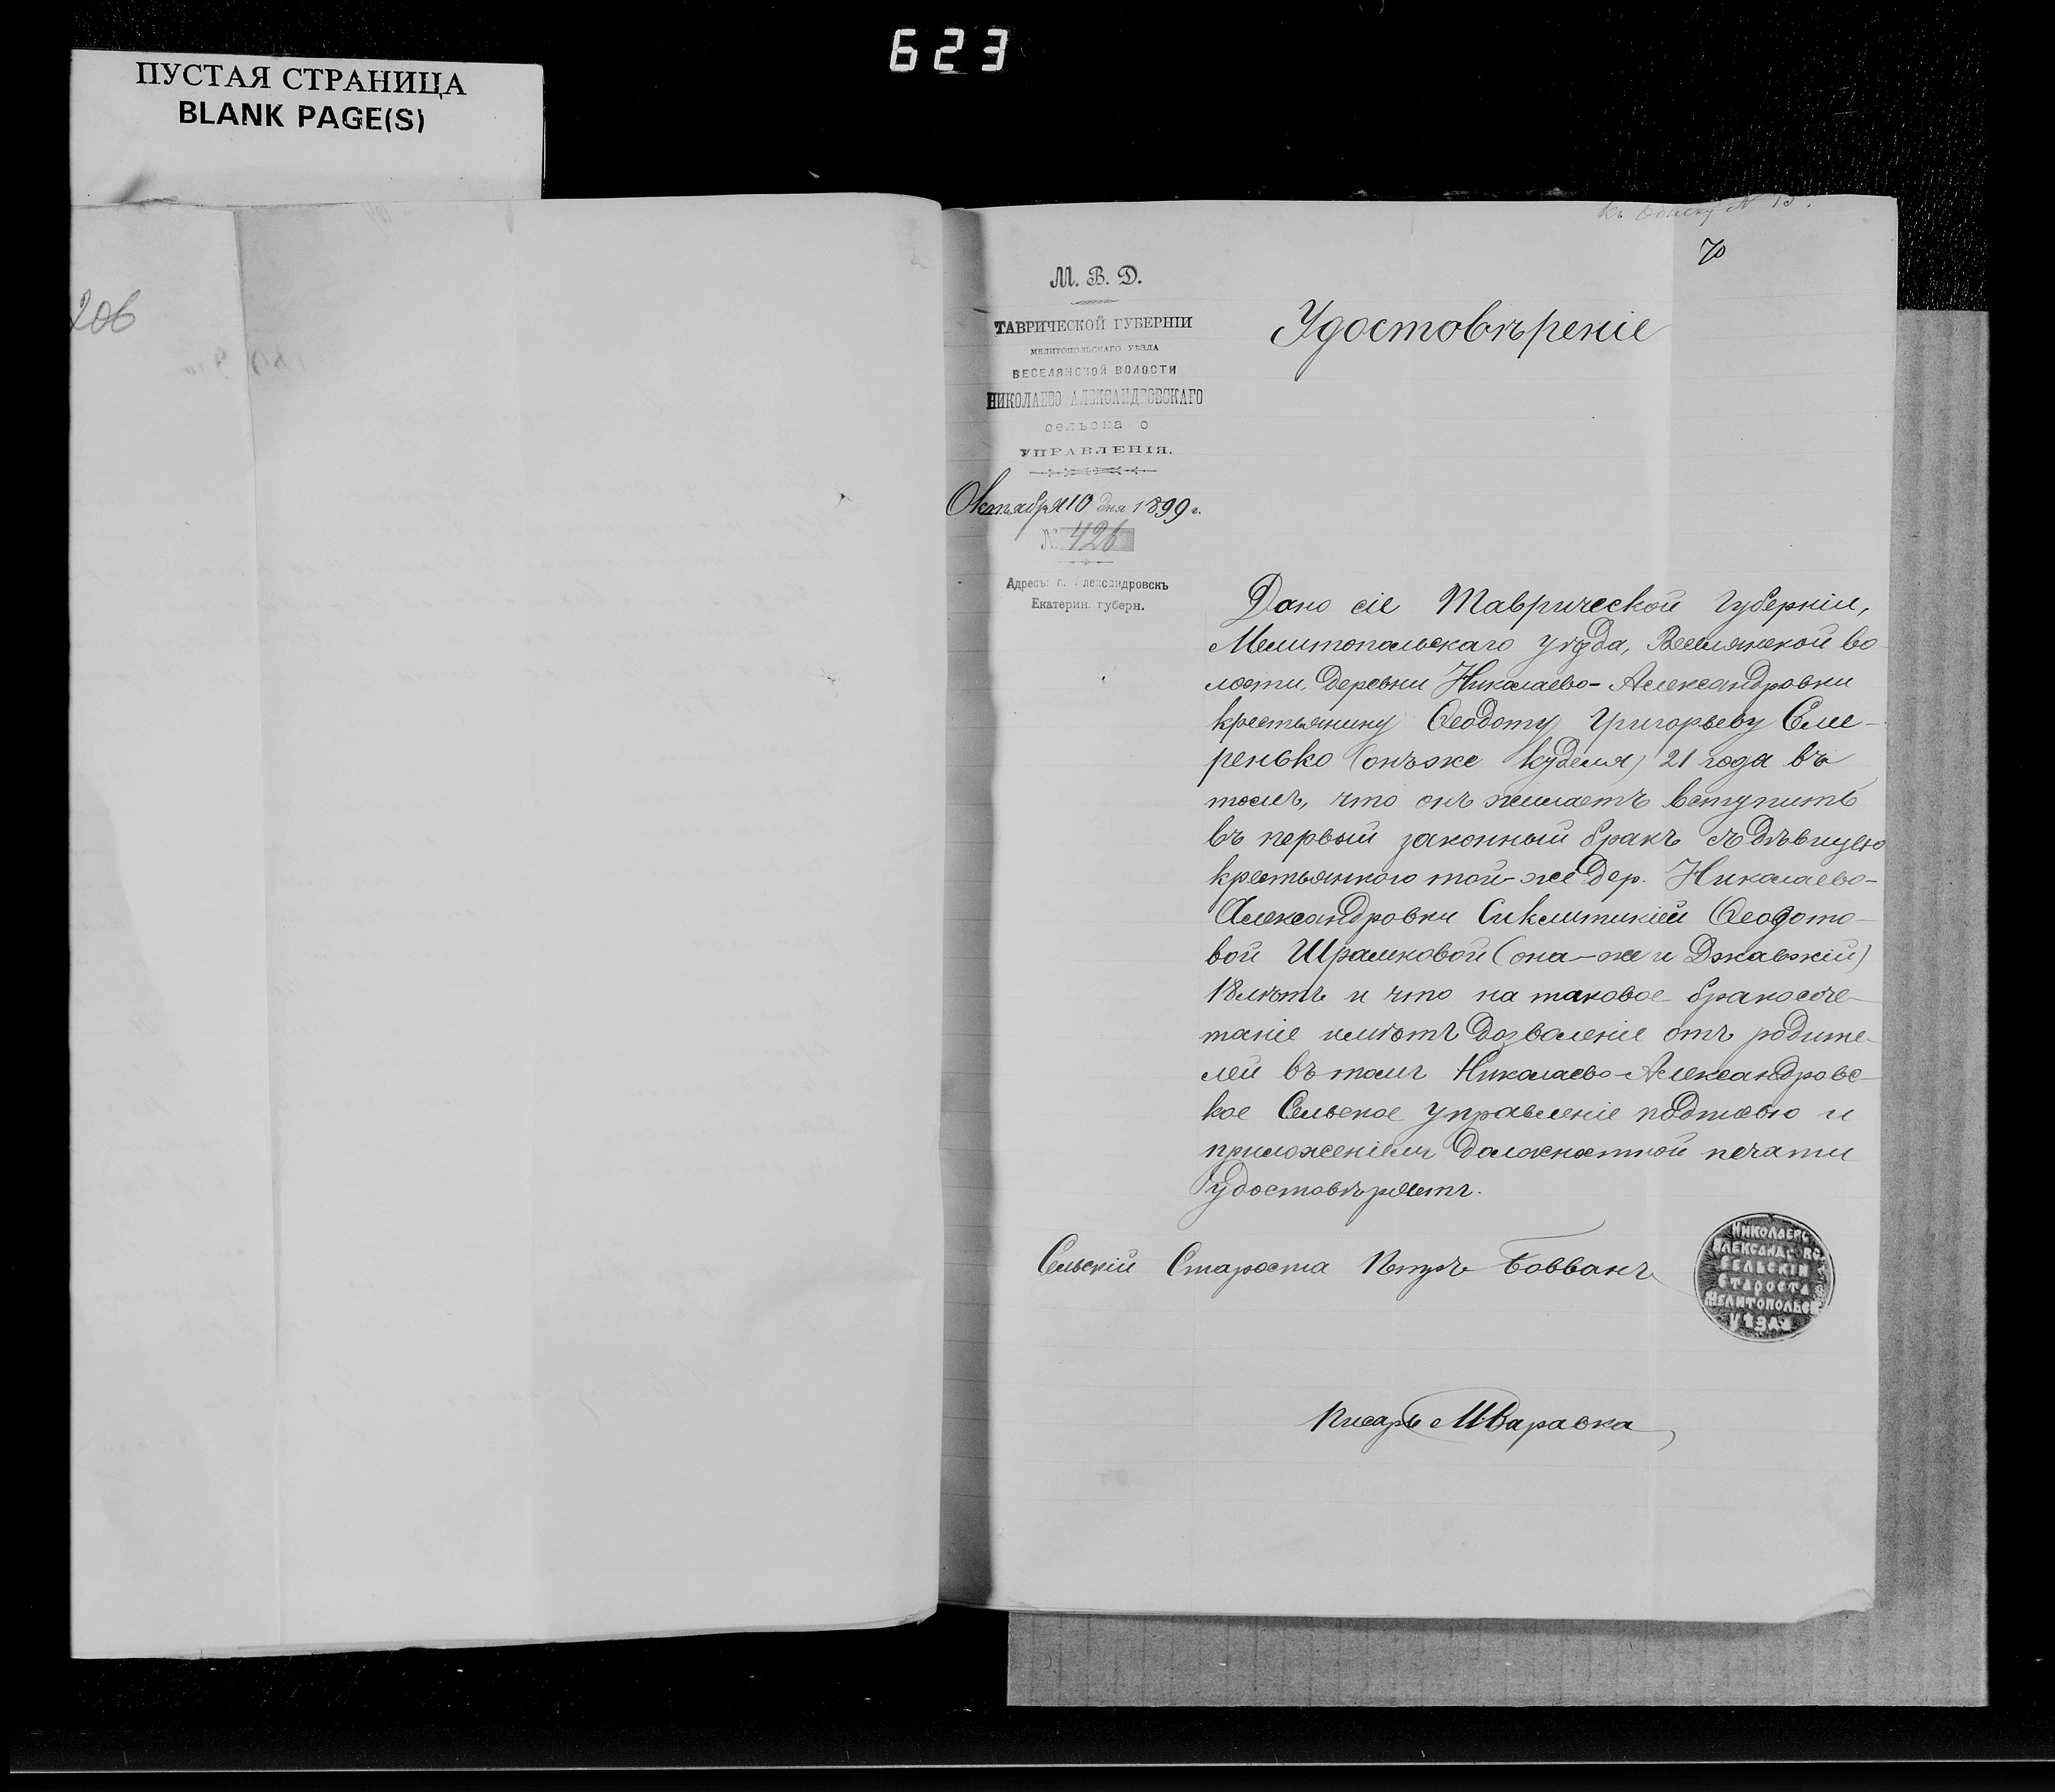 623
ПУСТАЯ СТРАНИЦА
BLANK PAGE(S)
206
къ обыску № 13.
70
М. В. Д.
ТАВРИЧЕСКОЙ ГУБЕРНІИ
МЕЛИТОПОЛЬСКАГО УѢЗДА
ВЕСЕЛЯНСКОЙ ВОЛОСТИ
НИКОЛАЕВО-АЛЕКСАНДРОВСКАГО
сельска о
УПРАВЛЕНІЯ.
Октября 10 дня 1899 г.
№ 426
Адресъ: г. Александровскъ
Екатерин. губерн.
Удостовѣреніе
Дано сіе Таврической Губерніи,
Мелитопольскаго уѣзда, Веселянской во-
лости, деревни Николаево-Александровки
крестьянину Ѳеодоту Григорьеву Семе-
ренько (онъ же Куделя) 21 года въ
томъ, что онъ желаетъ вступить
въ первый законный бракъ съ дѣвицею
крестьянкою той-же дер. Николаево-
Александровки Синклитикіей Ѳеодото-
вой Шрамковой (она-же и Джавжій)
18 лѣтъ и что на таковое бракосоче-
таніе имѣетъ дозволеніе отъ родите-
лей въ томъ Николаево-Александровс-
кое Сельское управленіе подписью и
приложеніемъ должностной печати
удостовѣряетъ.
Сельскій Староста Петръ Бовванъ
НИКОЛАЕВО
АЛЕКСАНДРОВС
СЕЛЬСКІЙ
СТАРОСТА
МЕЛИТОПОЛЬСК
УѢЗДА
Писарь М Варавка